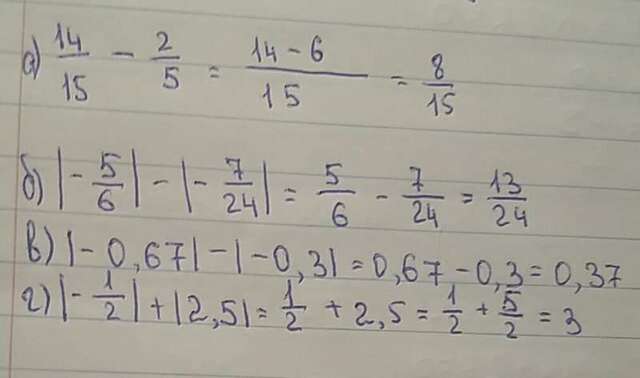 а) 14/15 - 2/5 = (14-6)/15 = 8/15
б) |-5/6| - |-7/24| = 5/6 - 7/24 = 13/24
в) |-0,67| - |-0,3| = 0,67 - 0,3 = 0,37
г) |-1/2| + |2,5| = 1/2 + 2,5 = 1/2 + 5/2 = 3